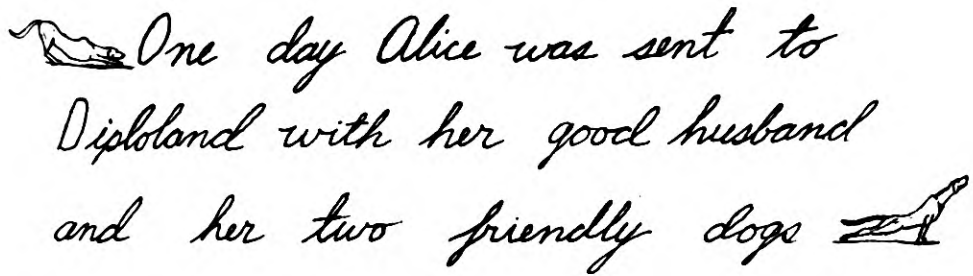 One day Alice was sent to
Diploland with her good husband
and her two friendly dogs